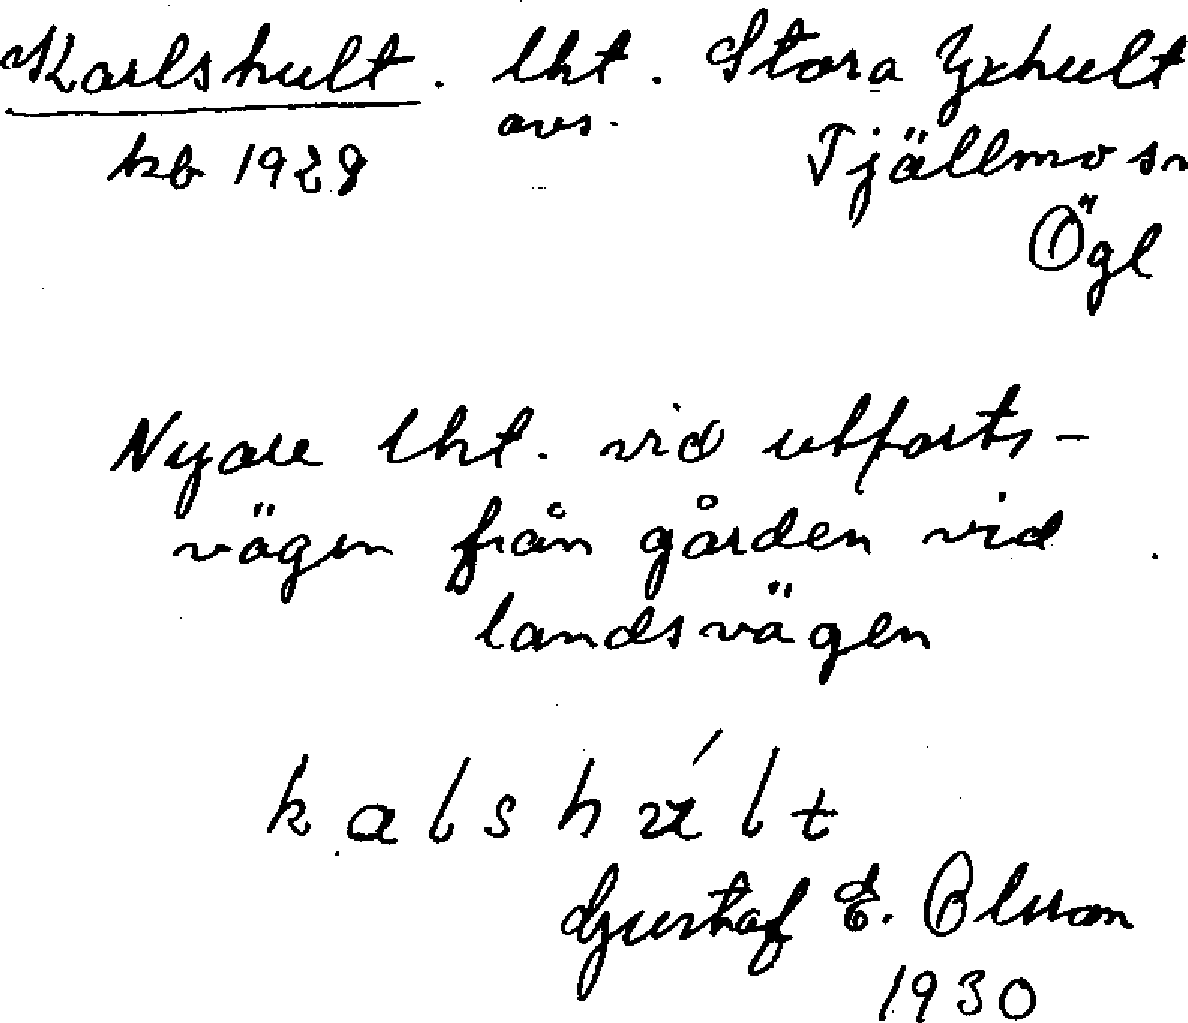 Karlshult. lht. Stora Yxhult
avs.
kb 1928 Tjällmo sn
Ögl
Nyare lht. vid utfarts-
vägen från gården vid
landsvägen
kalshult
Gustaf E. Olsson
1930